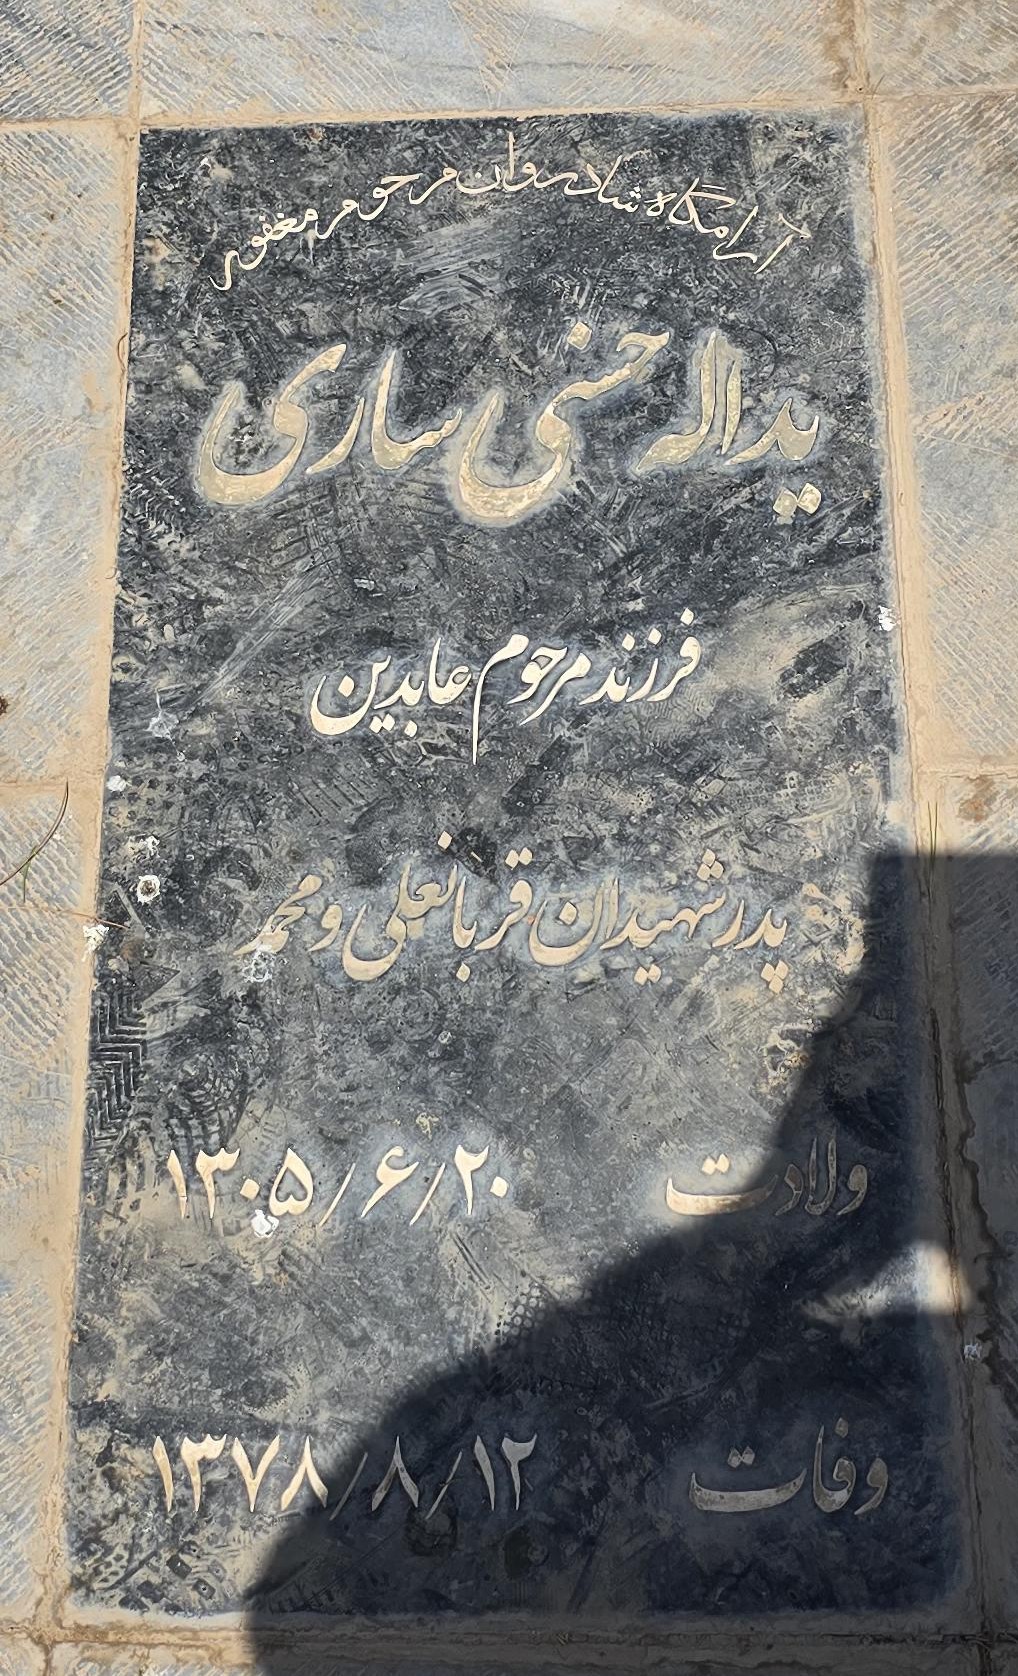 آرامگاه شادروان مرحوم مغفور
یداله حسنی ساری
فرزند مرحوم عابدین
پدر شهیدان قربانعلی و محمد
ولادت ۱۳۰۵/۶/۲۰
وفات ۱۳۷۸/۸/۱۲